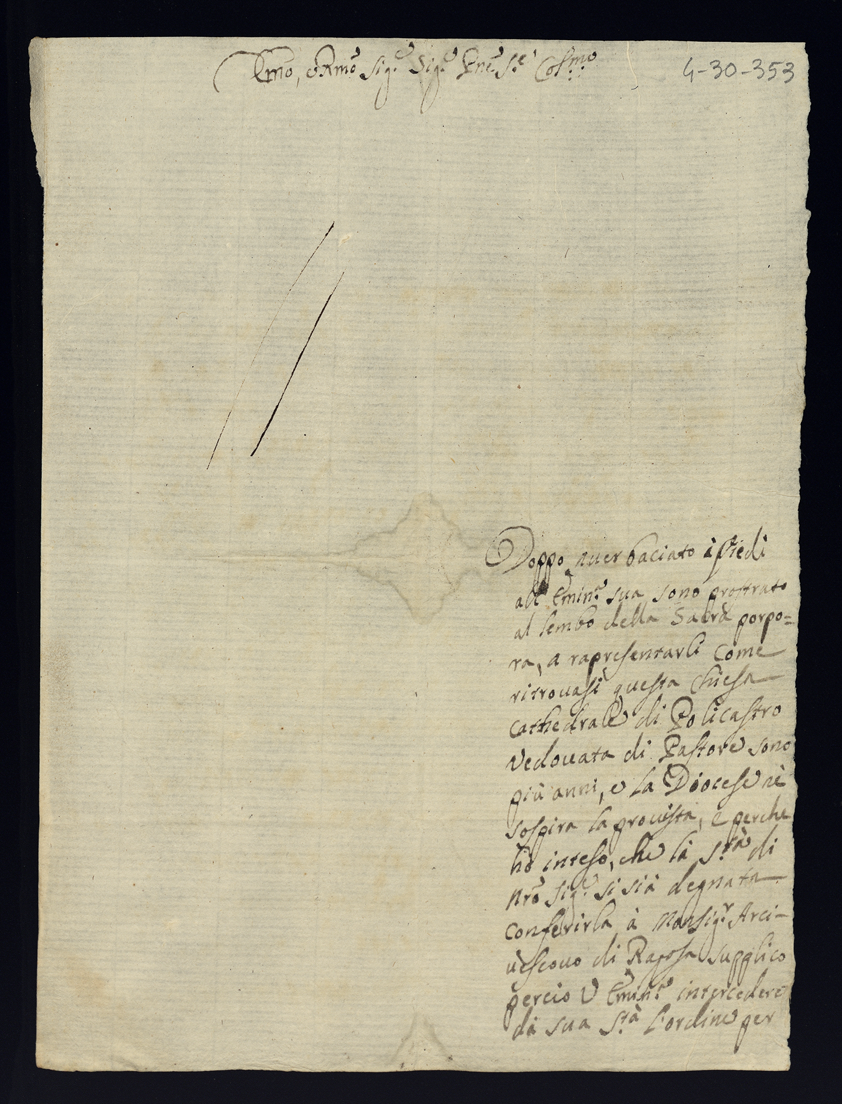 Emo, e Rmo Sig.e Sig.e Pne. S.e Col.mo
4-30-353
Doppo aver baciato i piedi
all' Emin.a sua sono prostrato
al lembo della Sacra porpo=
ra, a rapresentarli come
ritrovasi questa Chiesa
Cathedrale di Policastro
Vedovata di Pastore sono
più anni, e la Diocese nè
sospira la provista, e perche
hò inteso, che la S.tà di
Nrô Sig.e si sià degnata
conferirla à Monsig.r Arci-
vescovo di Ragosa supplico
perciò V Emin.a intercedere
dà sua S.tà l'ordine per